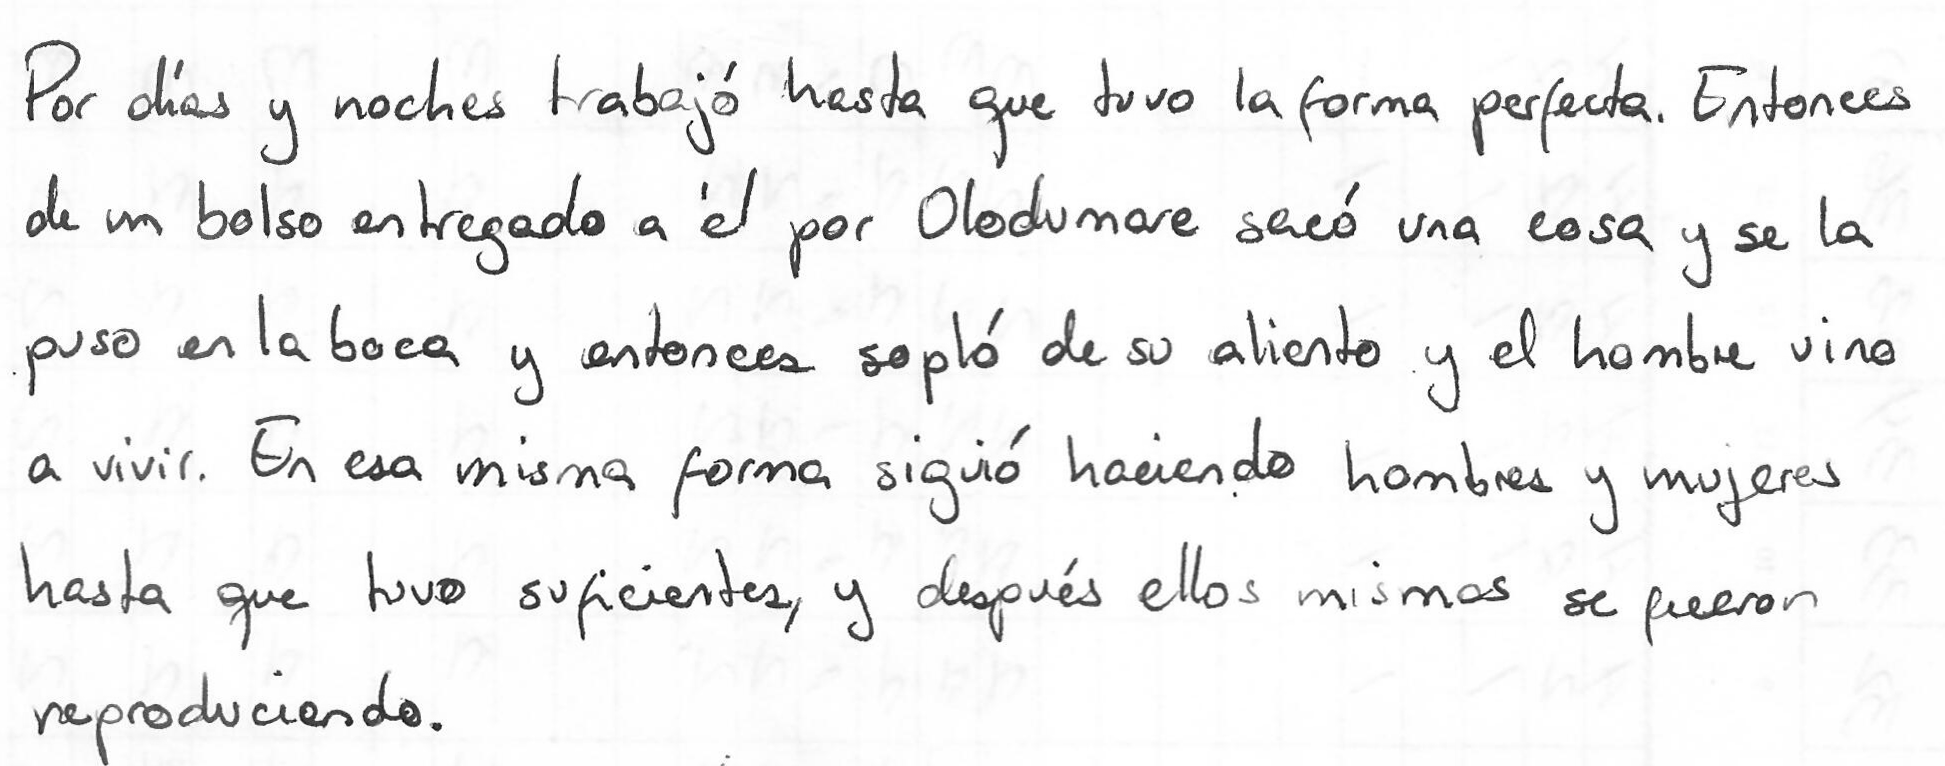 Por días y noches trabajó hasta que tuvo la forma perfecta. Entonces
de un bolso entregado a él por Olodumare sacó una cosa y se la
puso en la boca y entonces sopló de su aliento y el hombre vino
a vivir. En esa misma forma siguió haciendo hombres y mujeres
hasta que tuvo suficientes, y después ellos mismos se fueron
reproduciendo.